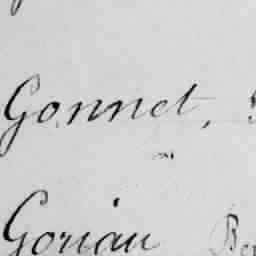 Gonnet,
Goriau Be